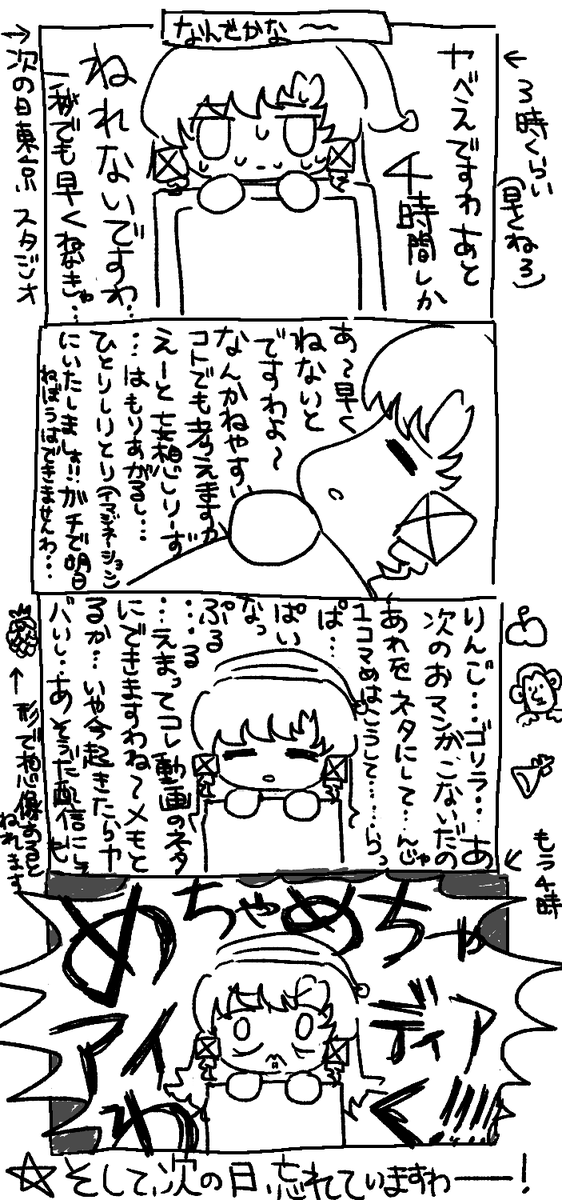 なんでかな〜
↓3時くらい
(早くねろ)
ヤベえですわあと
4時間しか
ねれないですわ…
一秒でも早くねなきゃ…
→次の日東京スタジオ
あ〜早く
ねないと
ですわよ〜
なんかねやすい
コトでも考えますか
えーと妄想しりーず
…はもりあがるし…
ひとりしりとり(イマジネーション)
にいたしましょ!!ガチで明日
ねぼうはできませんわ…
りんご…ゴリラ…あ
次のおマンがこないだの
あれをネタにして…んじゃ
1コマめはこうして……らっ
ぱ…
ぱい
なっ
ぷる
…る
…えまってコレ動画のネタ
にできますわね〜メモと
るか…いや今起きたらヤ
バいし…あそうだ配信にしても
←形で想像すると
ねれます
↓もう4時
めちゃめちゃ
アイディア
わく!!!!
☆そして、次の日、忘れていますわ――!